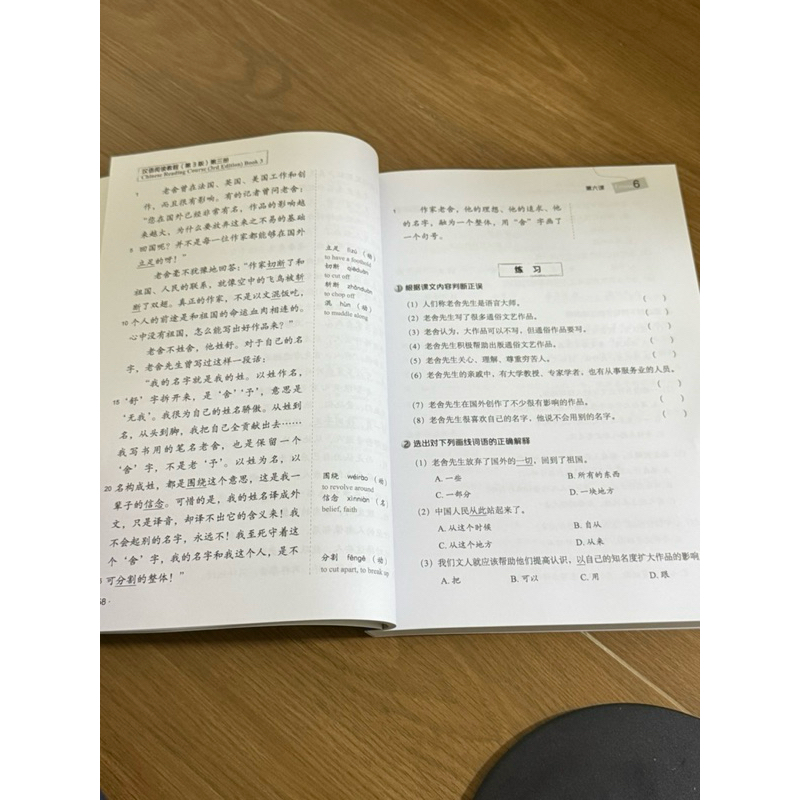 汉语阅读教程（第3版）第三册
Chinese Reading Course (3rd Edition) Book 3
老舍曾在法国、英国、美国工作和创
作，而且很有影响。有的记者曾问老舍：
“您在国外已经非常有名，作品的影响越
来越大，为什么要放弃这来之不易的基础
回国呢？并不是每一位作家都能够在国外
立足的呀！”
老舍毫不犹豫地回答：“作家切断了和
祖国、人民的联系，就像空中的飞鸟被斩
断了双翅。真正的作家，不是以文混饭吃，
10 个人的前途是和祖国的命运血肉相连的。
心中没有祖国，怎么能写出好作品来？”
老舍不姓舍，他姓舒。对于自己的名
字，老舍先生曾写过这样一段话：
“我的名字就是我的姓。以姓作名，
15 ‘舒’字拆开来，是‘舍’‘予’，意思是
‘无我’。我很为自己的姓名骄傲。从姓到
名，从头到脚，我把自己全贡献出去……
我写书用的笔名老舍，也是保留一个
‘舍’字，不是老‘予’。以姓为名，以
20 名构成姓，都是围绕这个意思，这是我一
辈子的信念。可惜的是，我的姓名译成外
文，只是译音，却译不出它的含义来！我
不会起别的名字，永远不！我至死守着这
个‘舍’字，我的名字和我这个人，是不
可分割的整体！”
立足 lìzú （动）
to have a foothold
切断 qiēduàn
to cut off
斩断 zhǎnduàn
to chop off
混 hùn （动）
to muddle along
围绕 wéirào （动）
to revolve around
信念 xìnniàn （名）
belief, faith
分割 fēngē （动）
to cut apart, to break up
68
第六课 6
作家老舍，他的理想、他的追求、他
的名字，融为一个整体，用“舍”字画了
一个句号。
练 习
1 根据课文内容判断正误
（1）人们称老舍先生是语言大师。 （ ）
（2）老舍先生写了很多通俗文艺作品。 （ ）
（3）老舍认为，大作品可以不写，但通俗作品要写。 （ ）
（4）老舍先生积极帮助出版通俗文艺作品。 （ ）
（5）老舍先生关心、理解、尊重穷苦人。 （ ）
（6）老舍先生的亲戚中，有大学教授、专家学者，也有从事服务业的人员。
（ ）
（7）老舍先生在国外创作了不少很有影响的作品。 （ ）
（8）老舍先生很喜欢自己的名字，他说不会用别的名字。 （ ）
2 选出对下列画线词语的正确解释
（1）老舍先生放弃了国外的一切，回到了祖国。
A. 一些 B. 所有的东西
C. 一部分 D. 一块地方
（2）中国人民从此站起来了。
A. 从这个时候 B. 自从
C. 从这个地方 D. 从来
（3）我们文人就应该帮助他们提高认识，以自己的知名度扩大作品的影响
A. 把 B. 可以 C. 用 D. 跟